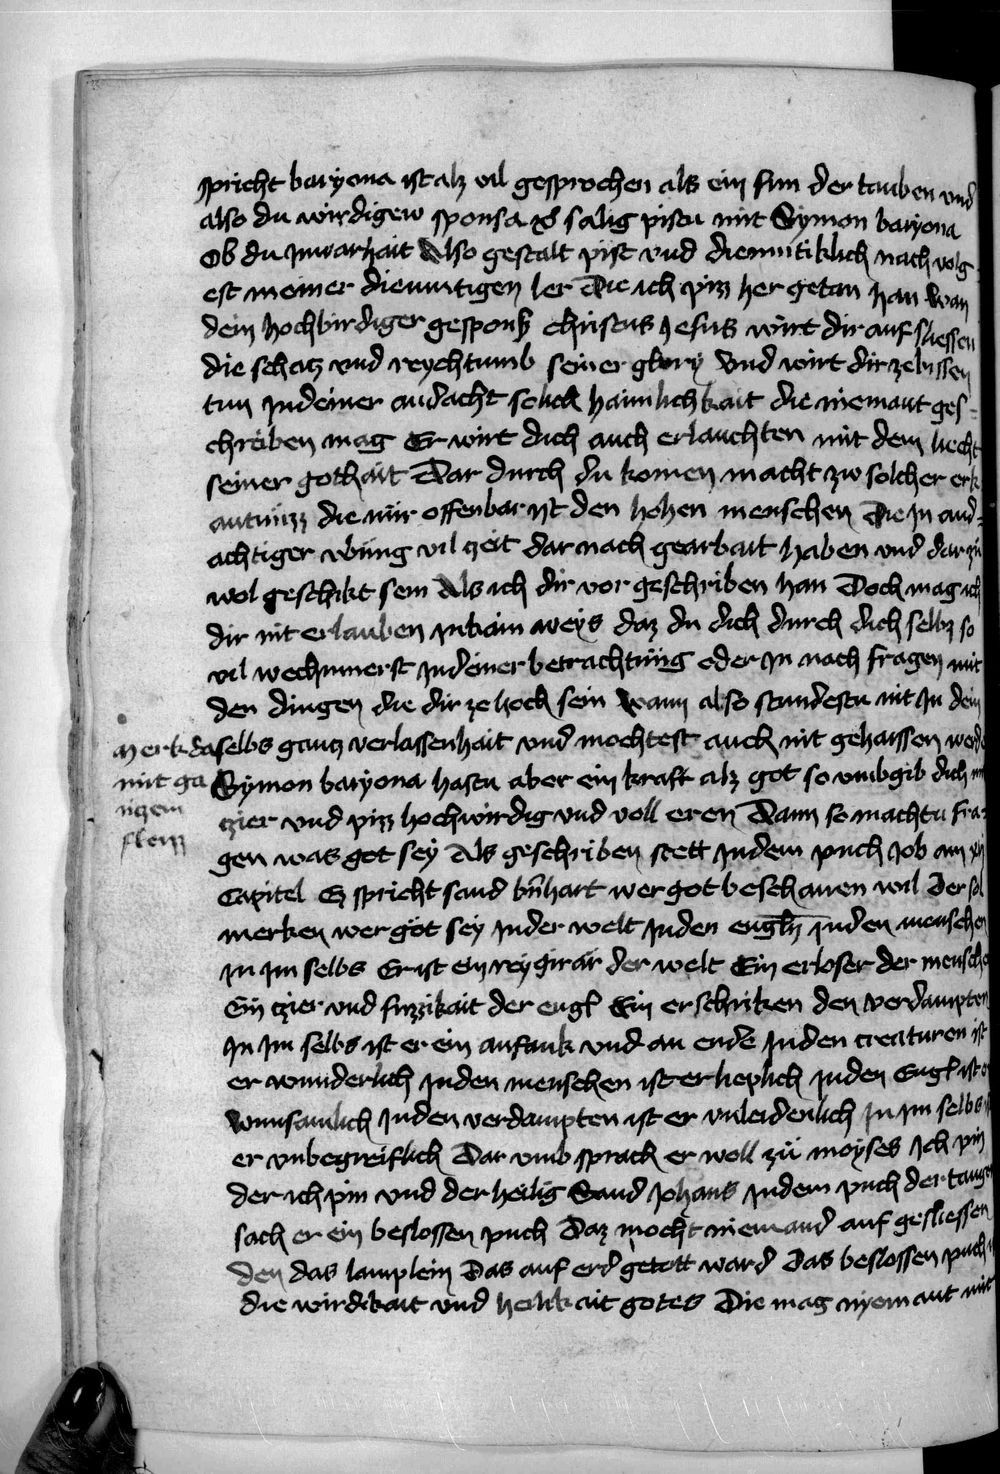 spricht baryona ist alz vil gesprochen als ein sun der tauben vnd
also du wirdigew sponsa salig pistu mit Symon baryona
Ob du jnwarhait Also gestalt pist vnd diemutiklich nach volg
est meiner diemutigen ler Die ich pizz her getan han Wan
dein hochbirdiger gesponß christus jesus wirt dir auf sliessen
die schatz vnd reychtumb seiner glory Vnd wirt dir ze wissen
tun jndeiner andacht solich haimlichkait die niemant ges-
chreiben mag Er wirt dich auch erlauchten mit dem liecht
seiner gothait Dar durch du komen macht zw solcher erk
antnuzz die nür offenbar ist den hohen menschen Die jn and-
achtiger vbung vil zeit dar nach gearbait haben vnd dar zü
wol geschikt sein Als ich dir vor geschriben han Doch mag ich
dir nit erlauben jnkain weys daz du dich durch dich selbs so
vil wechumerst jndeiner betrachtung oder jn nach fragen mit
den dingen die dir ze hoch sein Wann also stundestu nit jn dein
selbs gantz verlassenhait vnd mochtest auch nit gehaissen werde
Symon baryona hastu aber ein kraft alz got so vmbgib dich mit
czier vnd pizz hochwirdig vnd voll eren Dann so machtu fra-
gen was got sey Als geschriben stett jndem puch Job am
Capitel Es spricht sand bernhart wer got beschauen wil Der sol
merken wer got sey jnder welt jnden engln jnden menschen
jn jm selbs Er ist ein reygirär der welt Ein erloser der mensche
Ein czier vnd suzzikait der engl Ein erschriken den verdampten
Jn jm selbs ist er ein anfank vnd an ende jnden creaturen ist
er wunderlich jnden menschen ist er lieplich jnden Engl ist er
Wunsamlich jnden verdampten ist er vnleidenlich Jn jm selbs ist
er vnbegreiflich Dar vmb sprach er woll zü moyses Jch pin
der ich pin vnd der heilig Sand Johans jndem puch der taugen
sach er ein beslossen puch Daz mocht niemand auf gesliessen
den das lamplein Das auf erd getott ward Das beslossen puch
die wirdikait vnd heilikait gotes Die mag nyemant mit
merk da
mit ga
nczem
fleizz